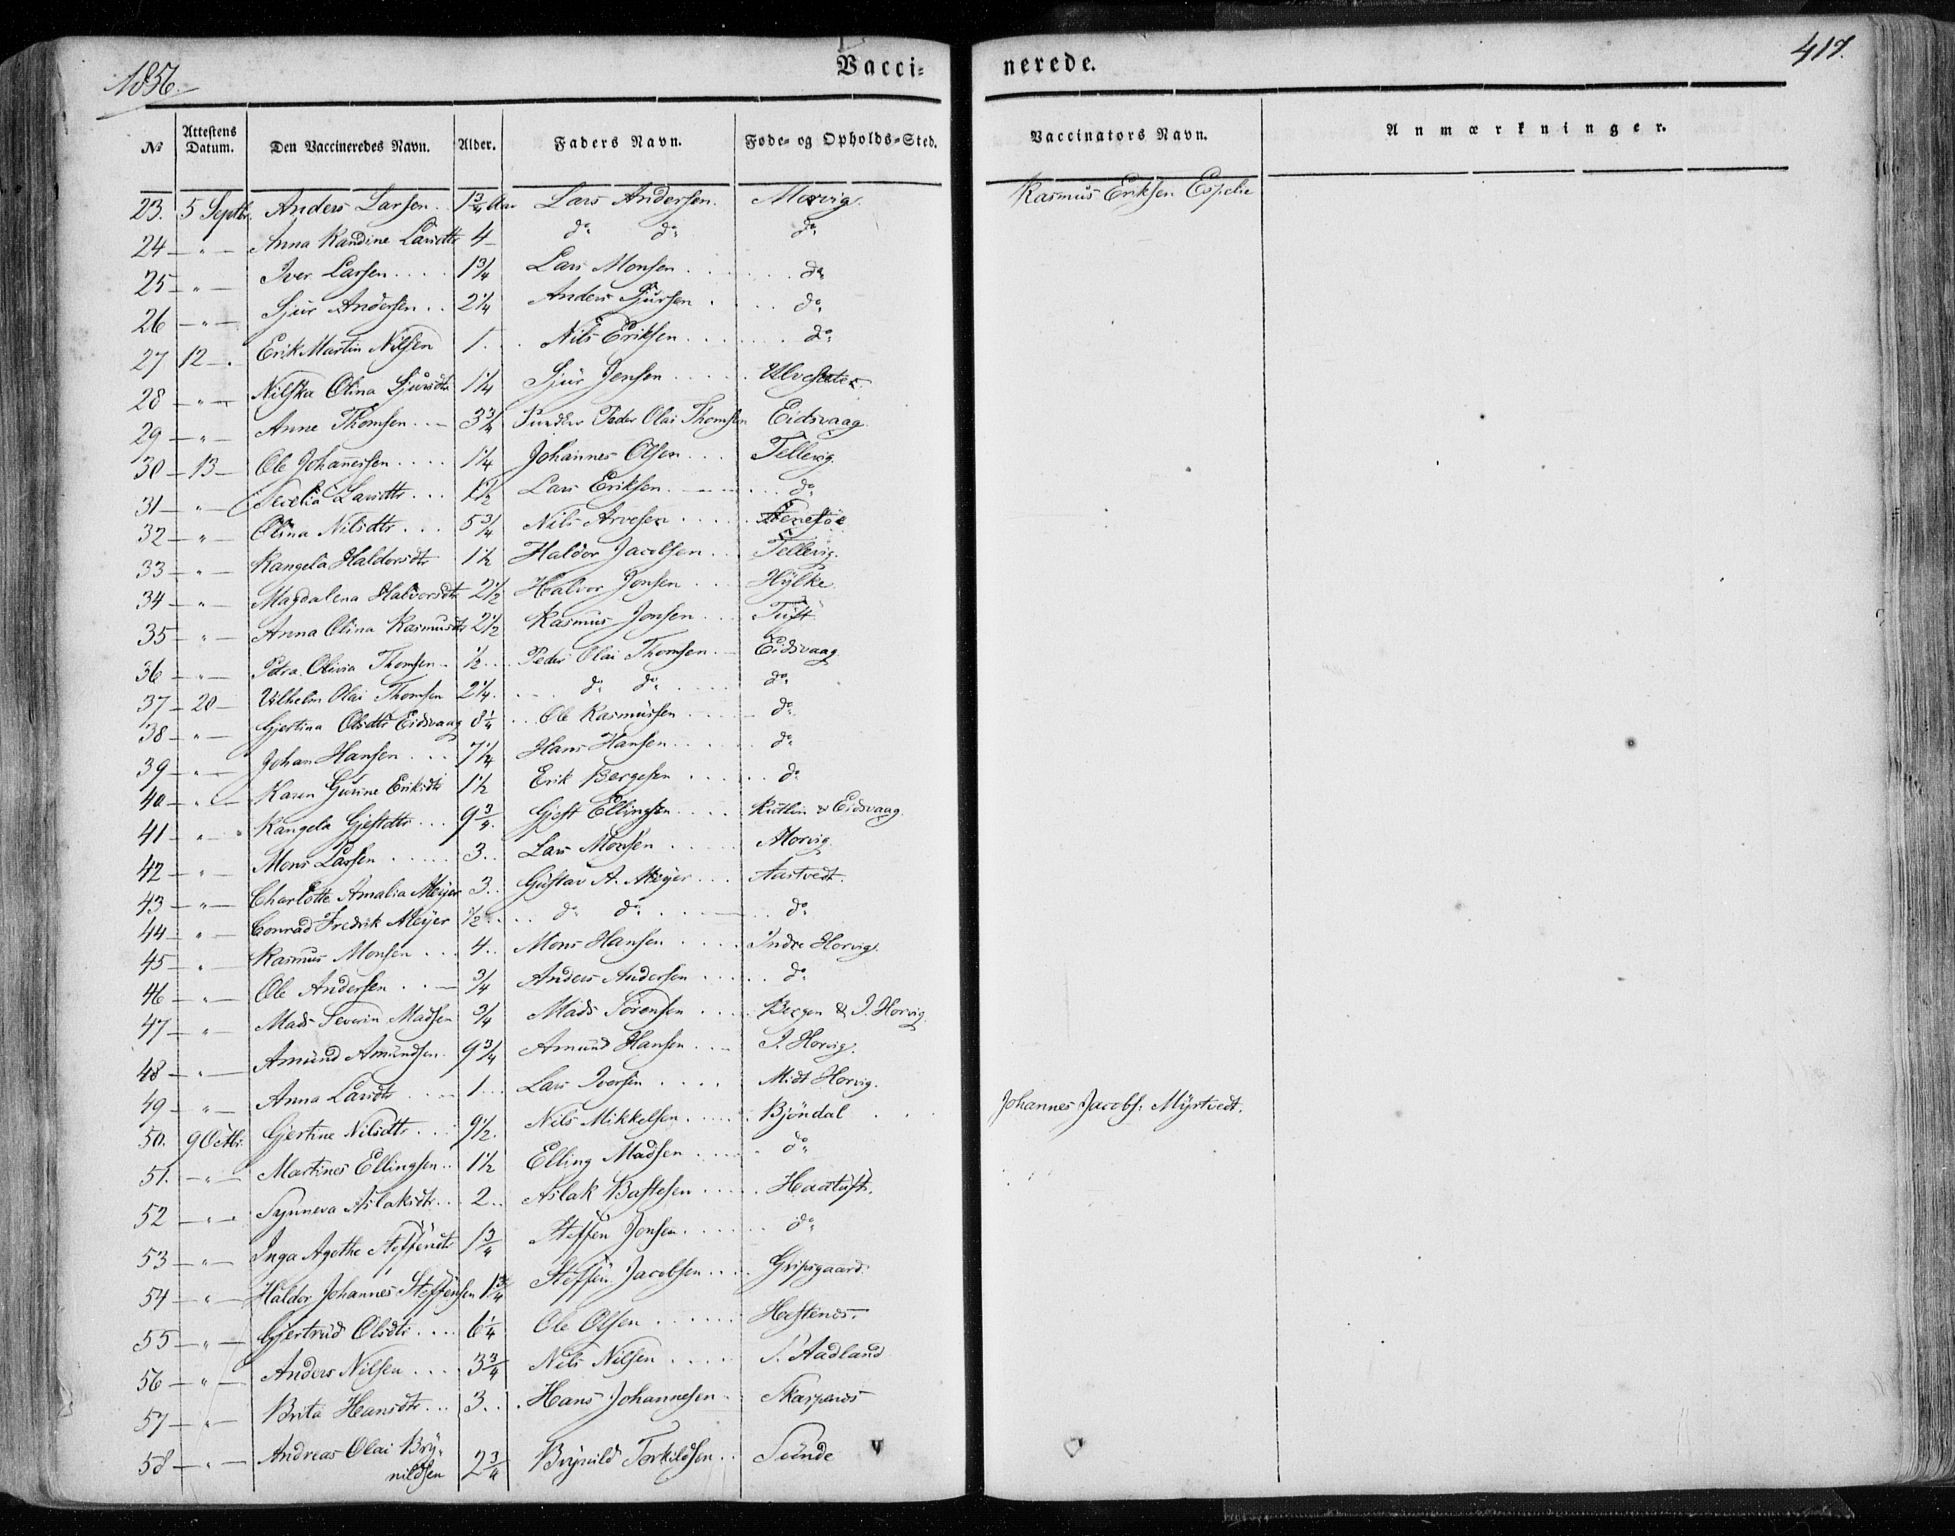 1856.
Vacci-
nerede.
417.
№ Attestens Datum. Den Vaccineredes Navn. Alder. Faders Navn. Føde- og Opholds-Sted. Vaccinators Navn. Anmærkninger.
23. 5 Septbr. Anders Larsen. 1 3/4 Aar Lars Andersen. Morvig. Rasmus Eriksen Espelie
24 — " — Anna Randine Larsdtr 4 do do do
25 — " — Iver Larsen.... 1 3/4 Lars Monsen do
26 — " — Sjur Andersen.. 2 1/4 Anders Sjursen. do
27 12 — . Erik Martin Nilsen 1. Nils Eriksen do
28 — " — Nilska Olina Sjursdtr 1 1/4 Sjur Jensen Ulvesæter.
29 — " — Anne Thomsen. 3 3/4 Peder Olai Thomsen Eidsvaag.
30 — 13 — Ole Johannessen.... 1 1/4 Johannes Olsen... Tellevig.
31 — " — Larsdtr... 1 1/2 Lars Eriksen. do
32 — " — Olina Nilsdtr... 5 3/4 Nils Arvesen
33 — " — Rangela Haldorsdtr 1 1/2 Haldor Jacobsen Tellevig.
34 — " — Magdalena Halvorsdtr 2 1/2 Halvor Jonsen Hylke.
35 — " — Anna Olina Rasmusdtr 2 1/2 Rasmus Jonsen Tuft.
36 — " — Petra Olivia Thomsen.. 1/2... Peder Olai Thomsen. Eidsvaag
37 — 20 — Vilhelm Olai Thomsen 2 1/4. do do do
38 — " — Gjertina Olsdtr Eidsvaag 8 1/4 Ole Rasmussen do
39 — " — Johan Hansen... 7 1/4 Hans Hansen do
40 — " — Karen Gurine Eriksdtr 1 1/2 Erik Bergesen do
41 — " — Rangela Gjestdtr... 9 3/4. Gjest Ellingsen Rutlin & Eidsvaag.
42 — " — Mons Larsen 3.. Lars Monsen Morvig
43 — " — Charlotte Amalia Meijer 3.. Gustav A. Meijer Aastvedt.
44 — " — Conrad Fredrik Meijer 1/2. do do do
45 — " — Rasmus Monsen... 4.. Mons Hansen Indre Horvig.
46 — " — Ole Andersen.. 3/4 Anders Andersen do
47 — " — Mads Severin Madsen 3/4 Mads Sörensen Bergen & I. Horvig.
48 — " — Amund Amundsen. 9 3/4 Amund Hansen I. Horvig.
49 — " — Anna Larsdtr 1... Lars Iversen Midt Horvig.
50. 9 Octbr. Gjertine Nilsdtr. 9 1/2. Nils Mikkelsen Bjöndal Johannes Jacobs. Myrtvedt.
51. — " — Martines Ellingsen.. 1 1/2 Elling Madsen do
52 — " — Synneva Aslaksdtr.. 2.. Aslak Bastesen Haatuft.
53 — " — Inga Agothe Steffensdtr 1 3/4 Steffen Jonsen do
54 — " — Haldor Johannes Steffensen 1 3/4 Steffen Jacobsen Gripsgaard.
55 — " — Gjertrud Olsdtr.... 6 1/4 Ole Olsen Hestenes.
56 — " — Anders Nilsen... 3 3/4 Nils Nilsen Aadland
57 — " — Brita Hansdtr... 3.. Hans Johannesen Skarpenes
58 — " — Andreas Olai Bry-
nildsen 2 3/4 Brynild Torkildsen.. Sunde